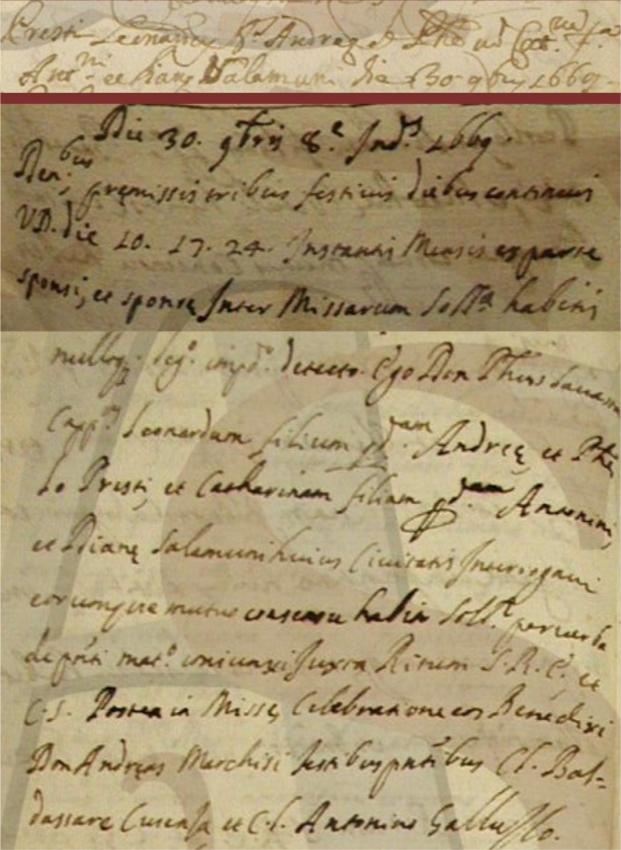 Presti Leonardus q. Andreę et Phę ad Cat.nā f.a
Ant.ni et Dianę Salamuni die 30 9bris 1669
Die 30. 9bris 8.e Ind.s 1669.
Den.bus premissis tribus festiuis diebus continuis
VD. die 10. 17. 24. Instantis Mensis ex parte
sponsi, et sponsę Inter Missarum Soll.a habitis
nulloq. leg.o imp.o detecto. Ego Don
Capp.s Leonardum filium qd.am Andreę et Phę
lo Presti, et Catharinam filiam qd.am Antonini,
et Dianę Salamuni huius Ciuitatis Interrogaui
eorumque mutuo consensu habito Soll.r per uerba
de pñti mat.o coniunxi Juxta Ritum S.R.E. et
C.S. Postea in Missę Celebratione eos Benedixi
Don Andreas Marchisi testibus pñtibus Cl. Bal-
dassare Cusenza et C.l. Antonino Galluffo.